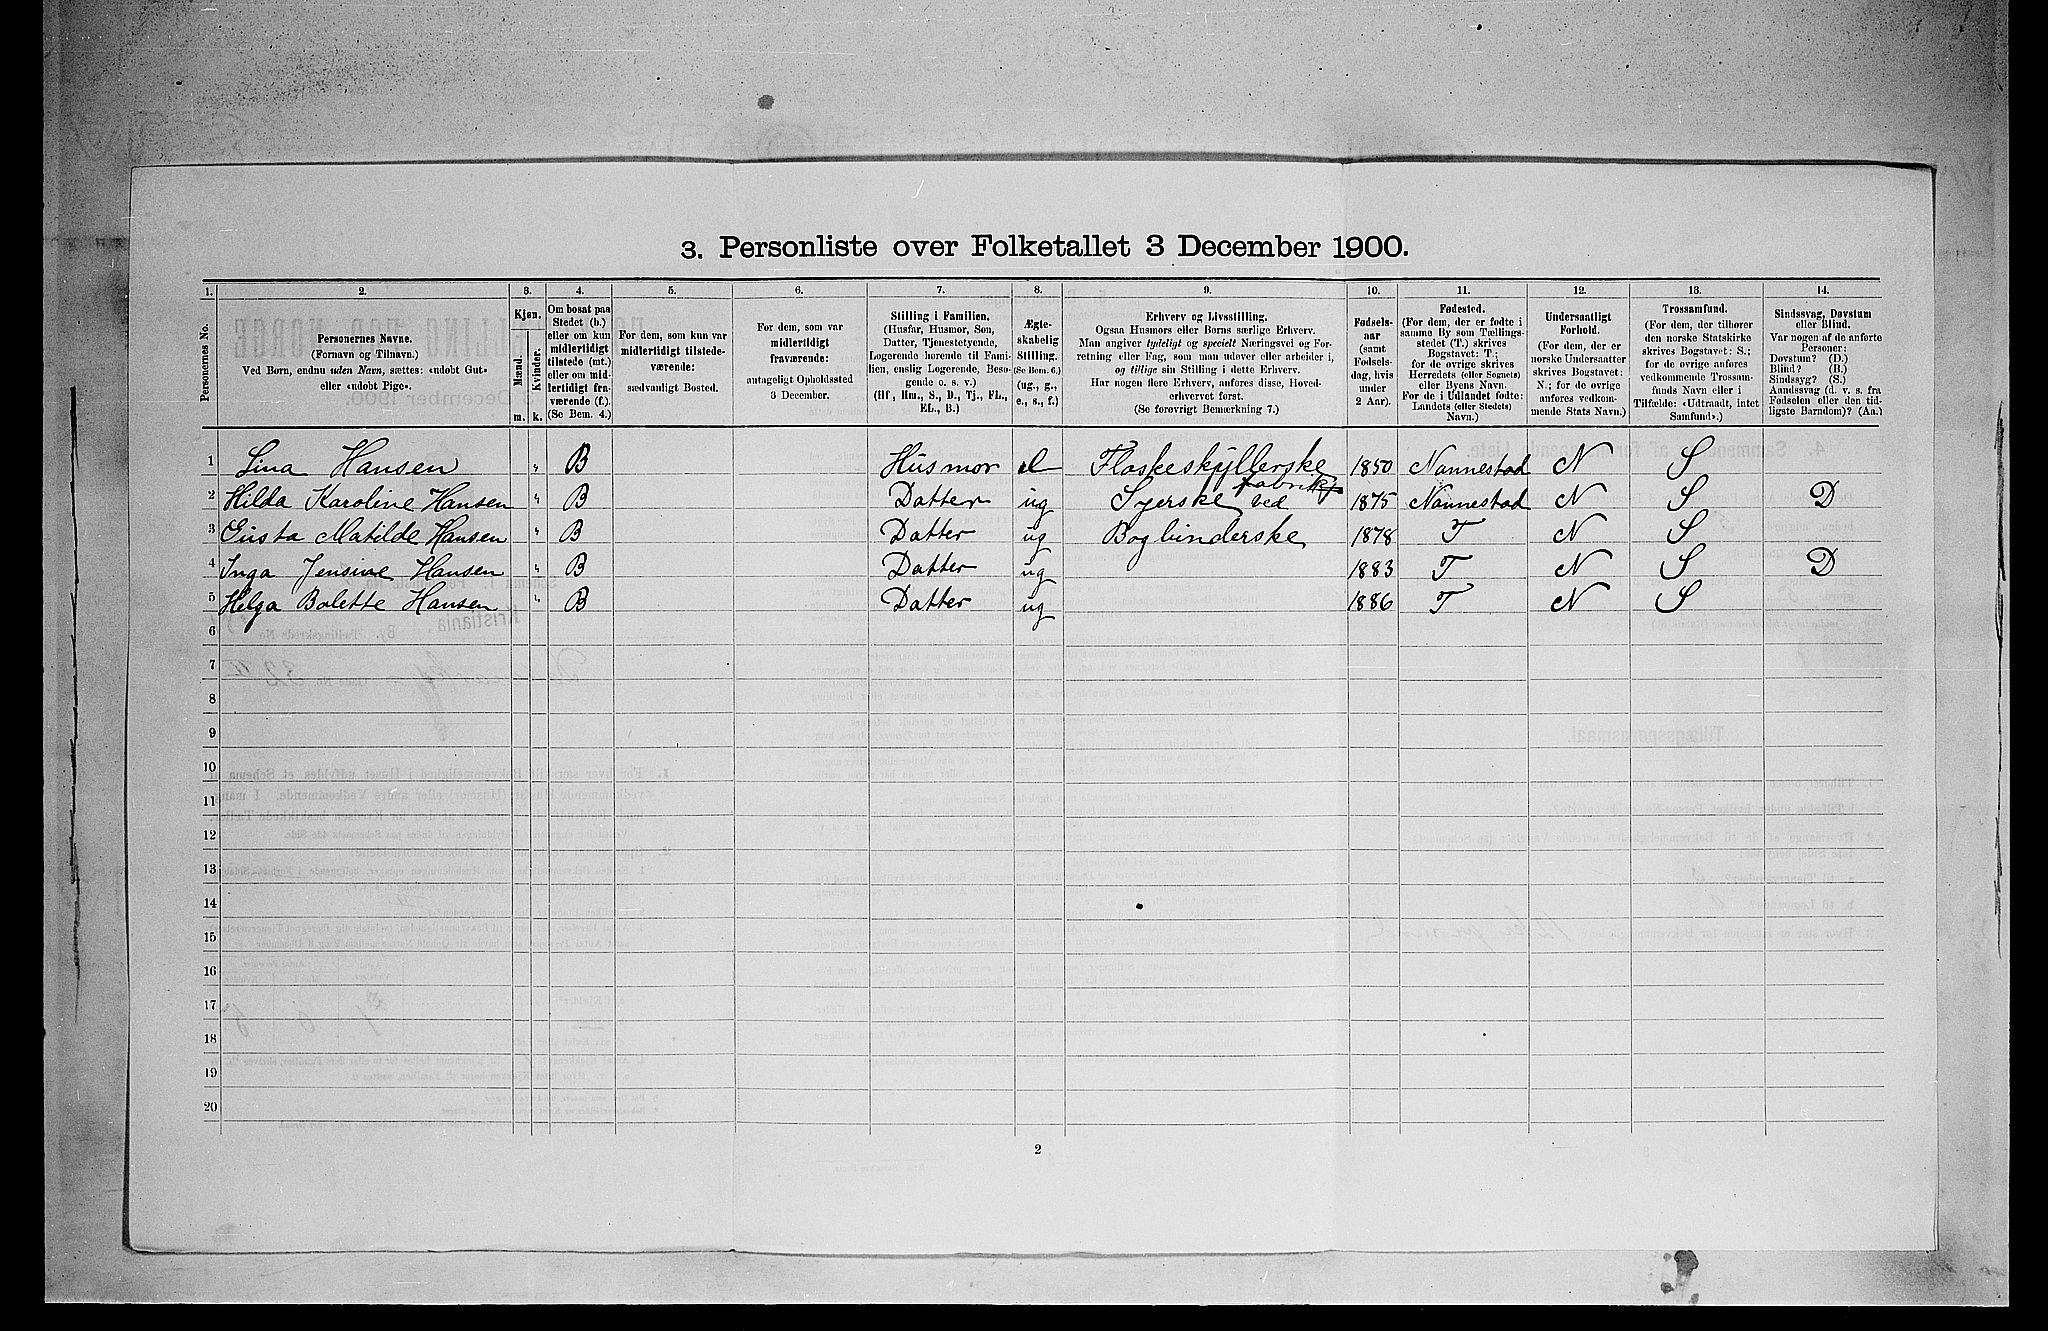 3. Personliste over Folketallet 3 December 1900.
1. 2. 3. 4. 5. 6. 7. 8. 9. 10. 11. 12. 13. 14.
Personernes No.
Personernes Navne.
(Fornavn og Tilnavn.)
Ved Børn, endnu uden Navn, sættes: «udøbt Gut»
eller «udøbt Pige».
Kjøn.
Mænd.
Kvinder.
m. k.
Om bosat paa
Stedet (b.)
eller om kun
midlertidigt
tilstede (mt.)
eller om mid-
lertidigt fra-
værende (f.)
(Se Bem. 4.)
For dem, som kun var
midlertidigt tilstede-
værende:
sædvanligt Bosted.
For dem, som var
midlertidigt
fraværende:
antageligt Opholdssted
3 December.
Stilling i Familien.
(Husfar, Husmor, Søn,
Datter, Tjenestetyende,
Logerende hørende til Fami-
lien, enslig Logerende, Besø-
gende o. s. v.)
(Hf, Hm., S., D., Tj., FL.,
EL., B.)
Ægte-
skabelig
Stilling.
(Se Bem. 6.)
(ug., g.,
e., s., f.)
Erhverv og Livsstilling.
Ogsaa Husmors eller Børns særlige Erhverv.
Man angiver tydeligt og specielt Næringsvei og For-
retning eller Fag, som man udøver eller arbeider i,
og tillige sin Stilling i dette Erhverv.
Har nogen flere Erhverv, anføres disse, Hoved-
erhvervet først.
(Se forøvrigt Bemærkning 7.)
Fødsels-
aar
(samt
Fødsels-
dag, hvis
under
2 Aar).
Fødested.
(For dem, der er fødte i
samme By som Tællings-
stedet (T.) skrives
Bogstavet: T;
for de øvrige skrives
Herredets (eller Sognets)
eller Byens Navn.
For de i Udlandet fødte:
Landets (eller Stedets)
Navn.)
Undersaatligt
Forhold.
(For dem, der er
norske Undersaatter
skrives Bogstavet:
N.; for de øvrige
anføres vedkom-
mende Stats Navn.)
Trossamfund.
(For dem, der tilhører
den norske Statskirke
skrives Bogstavet: S.;
for de øvrige anføres
vedkommende Trossam-
funds Navn eller i
Tilfælde: «Udtraadt, intet
Samfund».)
Sindssvag, Døvstum
eller Blind.
Var nogen af de anførte
Personer:
Døvstum? (D.)
Blind? (B.)
Sindssyg? (S.)
Aandssvag (d. v. s. fra
Fødselen eller den tid-
ligste Barndom)? (Aa.)
1 Lina Hansen " B Husmor Flaskeskyllerske 1850 Nannestad N S
2 Hilda Karoline Hansen " B Datter ug Syerske ved fabrik 1875 Nannestad N S D
3 Gusta Matilde Hansen " B Datter ug Bogbinderske 1878 T N S
4 Inga Jensine Hansen " B Datter ug 1883 T N S D
5 Helga Bolette Hansen " B Datter ug 1886 T N S
6
7
8
9
10
11
12
13
14
15
16
17
18
19
20
2